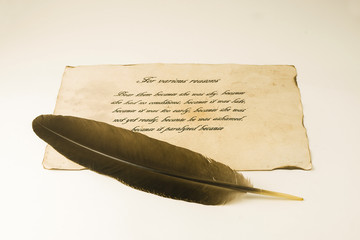 For various reasons
Dear them because she was shy, because
she had no conditions, because it was late,
because it was too early, because she was
not yet ready, because he was ashamed,
because is paralyzed because